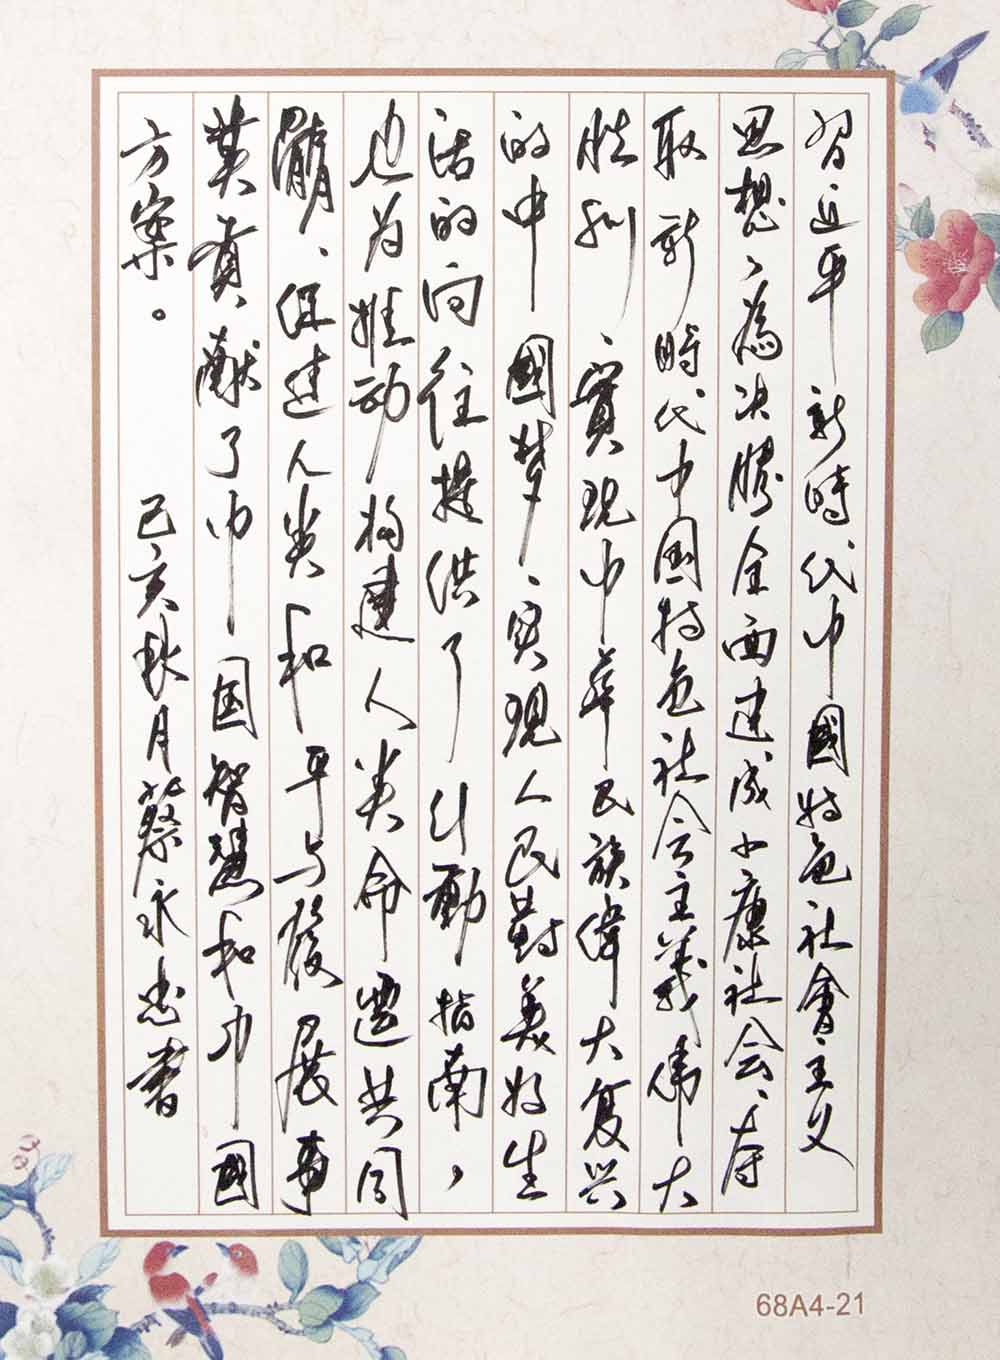 习近平新時代中國特色社會主义
思想、為决勝全面建成小康社会、夺
取新時代中国特色社会主義伟大
勝利、實現中华民族偉大复兴
的中國梦、实現人民對美好生
活的向往提供了行動指南，
也为推动构建人类命運共同
體、促進人类和平与發展事
業貢献了中国智慧和中國
方案。 己亥秋月蔡永忠書
68A4-21